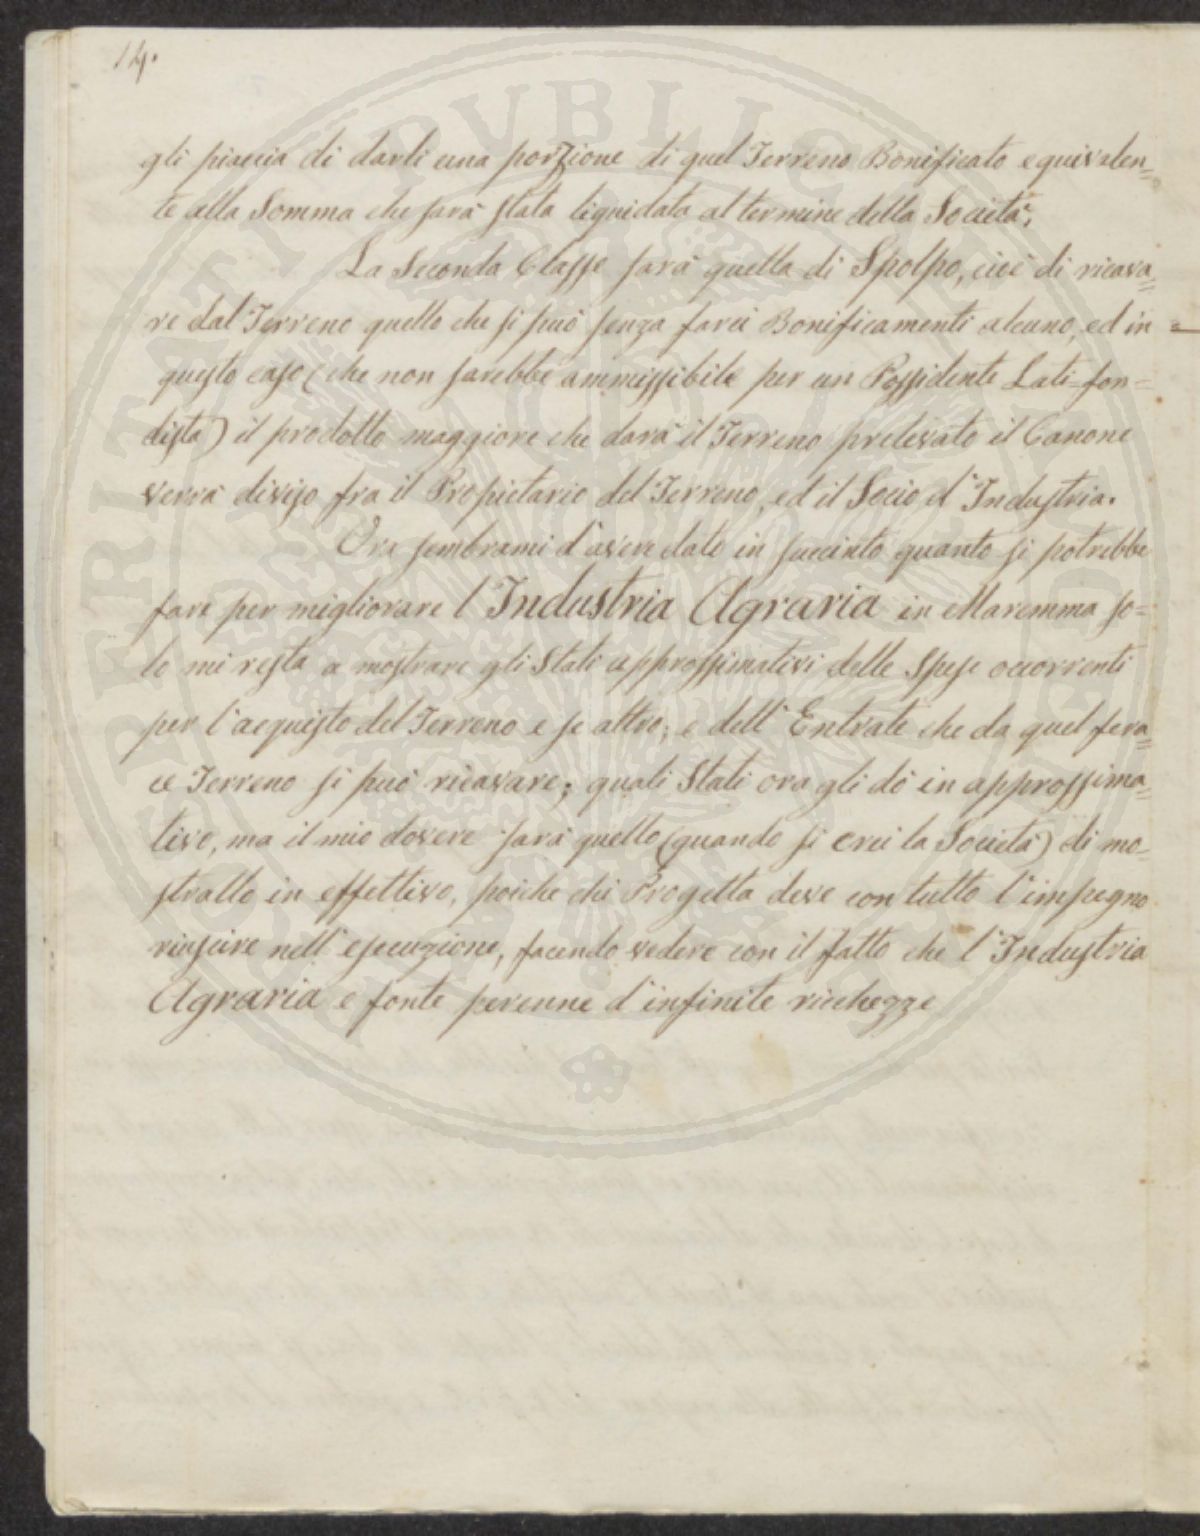 14.
gli piaccia di darli una porzione di quel Terreno Bonificato equivalen=
te alla Somma che sarà stata liquidata al termine della Società;
La Seconda Classe sarà quella di Spolpo, cioè di ricava=
re dal Terreno quello che si può senza farci Bonificamenti alcuno, ed in =
questo caso (che non sarebbe ammissibile per un Possidente Lati=fon=
dista) il prodotto maggiore che darà il Terreno prelevato il Canone
verrà diviso fra il Propietario del Terreno, ed il Socio d'Industria.
Ora sembrami d'avere dato in succinto quanto si potrebbe
fare per migliorare l'Industria Agraria in Maremma so=
lo mi resta a mostrare gli Stati approssimativi delle Spese occorrenti
per l'acquisto del Terreno e se altro; e dell'Entrate che da quel fera=
ce Terreno si può ricavare; quali Stati ora gli dò in approssima=
tivo, ma il mio dovere sarà quello (quando si crei la Società) di mo=
strallo in effettivo, poiche chi Progetta deve con tutto l'impegno
riuscire nell'esecuzione, facendo vedere con il fatto che l'Industria
Agraria e fonte perenne d'infinite ricchezze